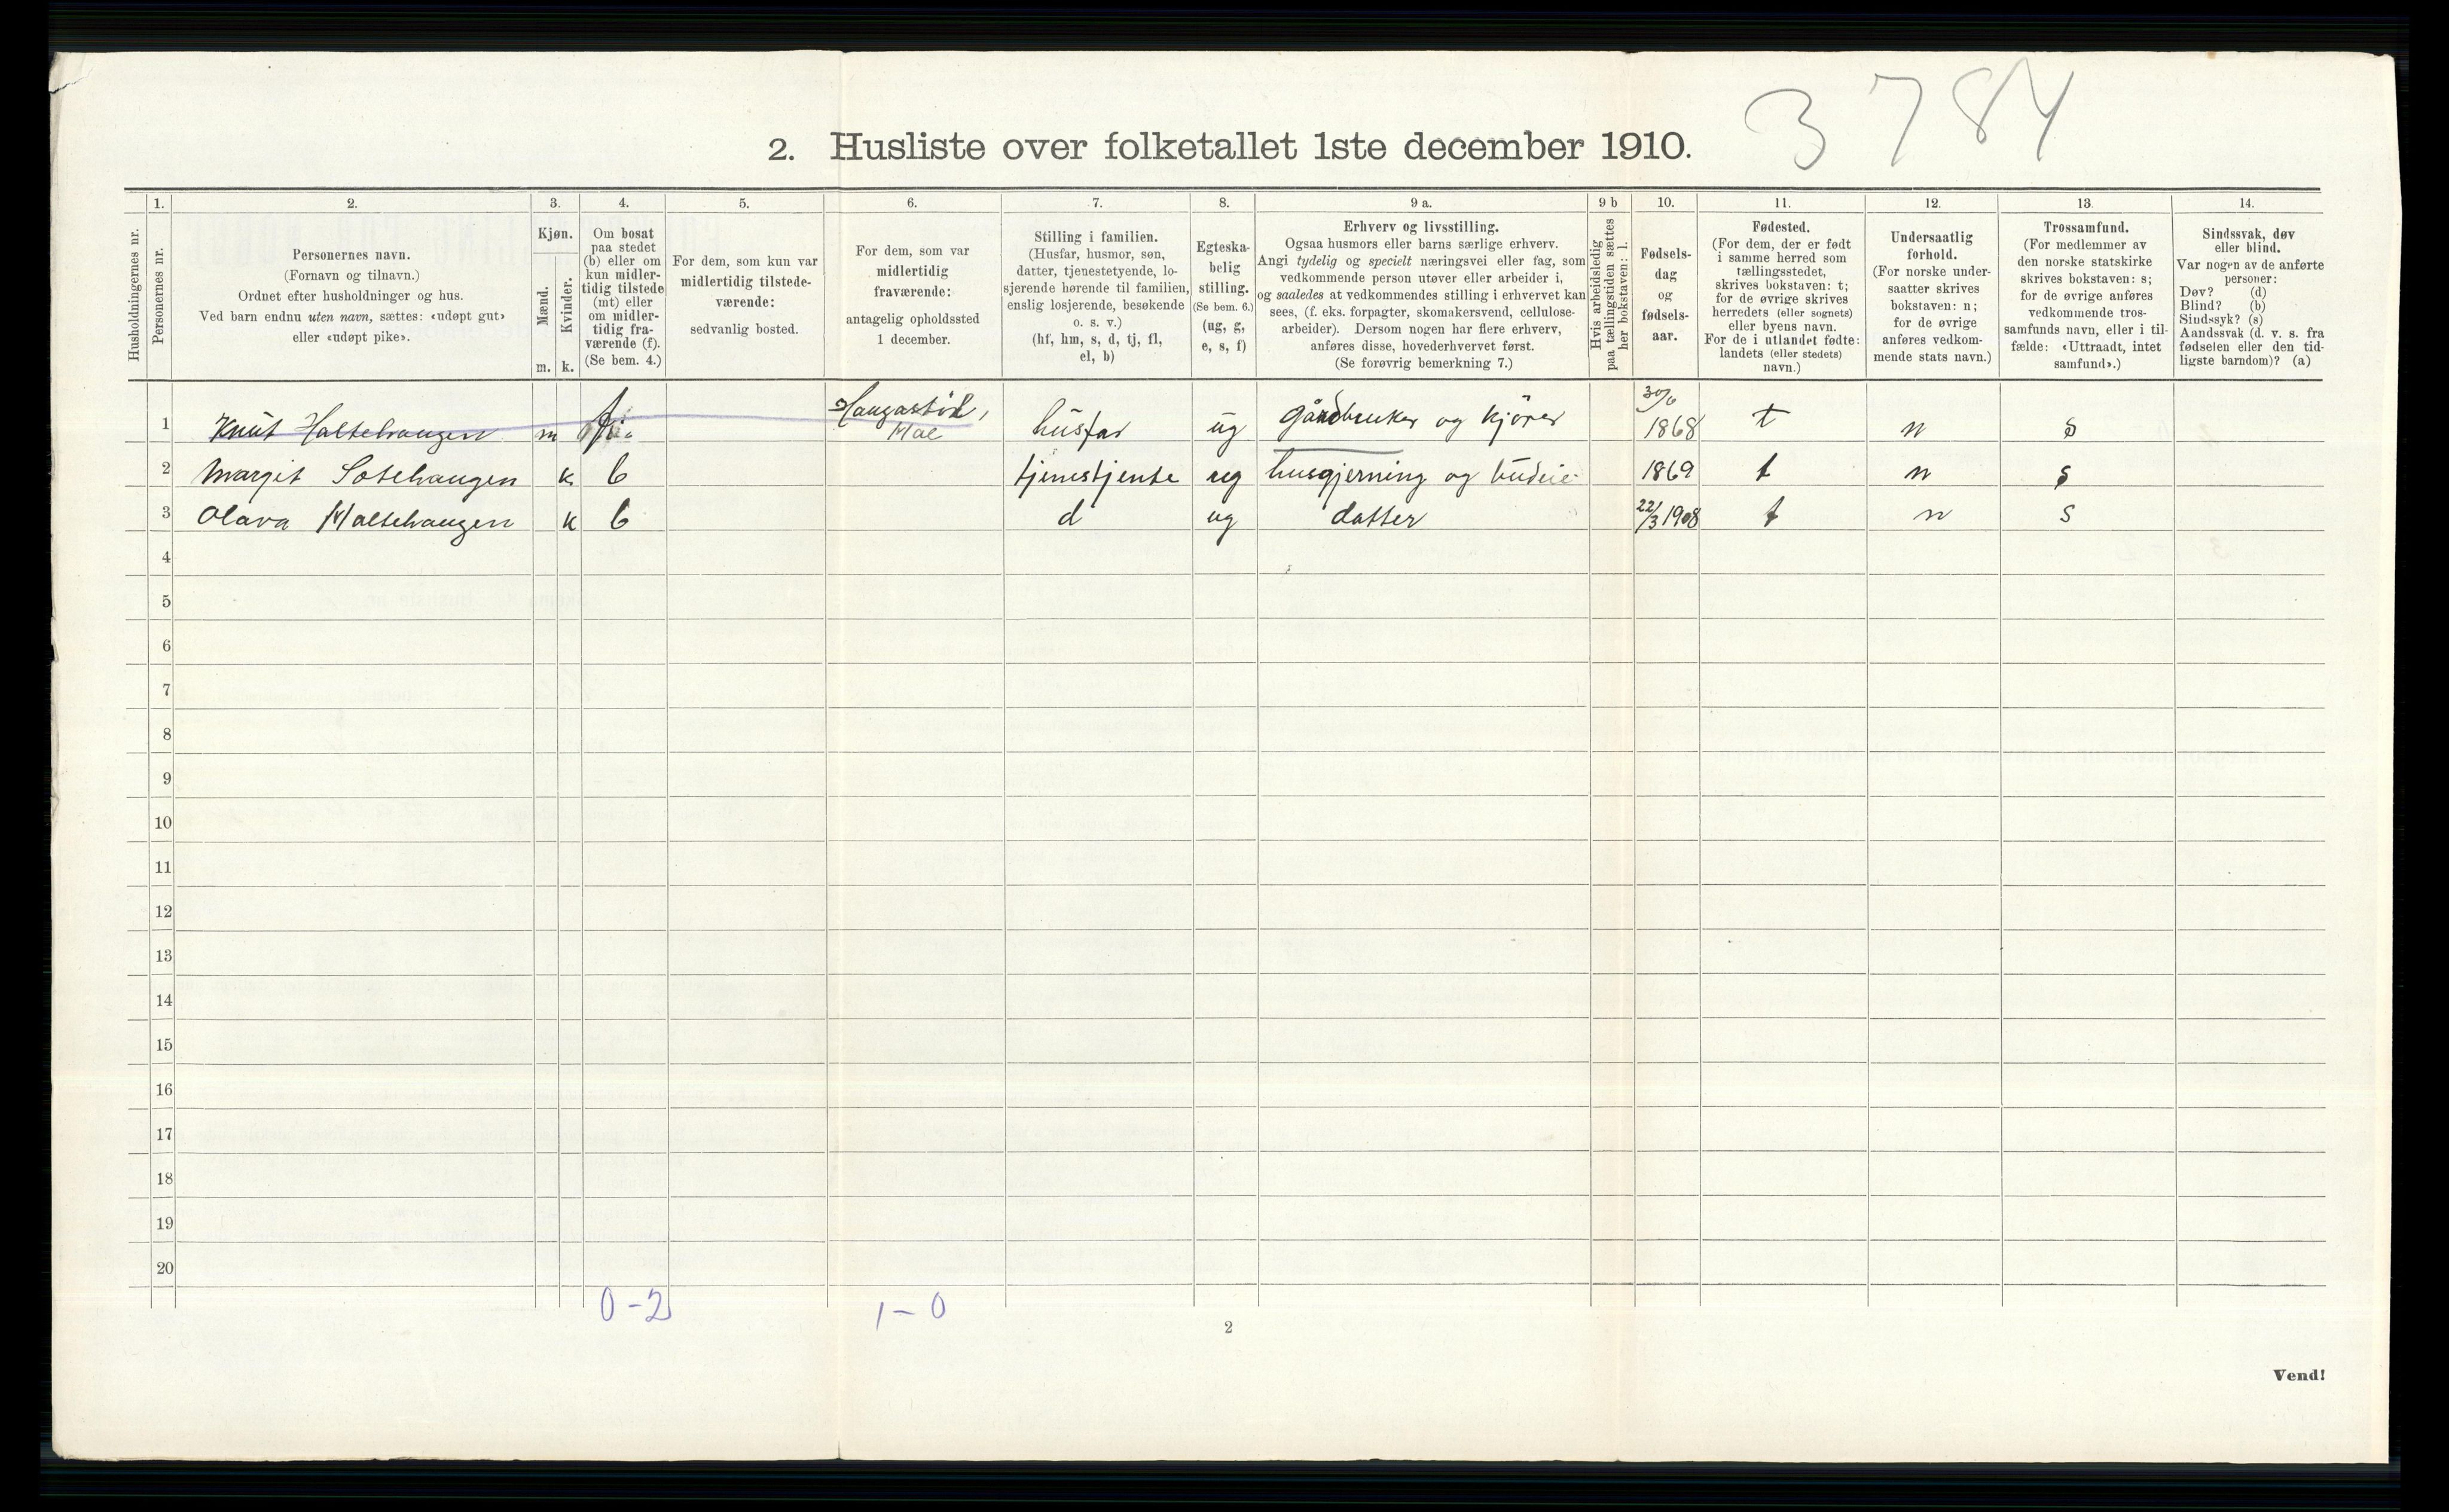 3 784
2. Husliste over folketallet 1ste december 1910.
Husholdningernes nr.
1. Personernes nr.
2. Personernes navn.
(Fornavn og tilnavn.)
Ordnet efter husholdninger og hus.
Ved barn endnu uten navn, sættes: «udøpt gut»
eller «udøpt pike».
3. Kjøn.
Mænd. m.
Kvinder. k.
4. Om bosat
paa stedet
(b) eller om
kun midler-
tidig tilstede
(mt) eller
om midler-
tidig fra-
værende (f).
(Se bem. 4.)
5. For dem, som kun var
midlertidig tilstede-
værende:
sedvanlig bosted.
6. For dem, som var
midlertidig
fraværende:
antagelig opholdssted
1 december.
7. Stilling i familien.
(Husfar, husmor, søn,
datter, tjenestetyende, lo-
sjerende hørende til familien,
enslig losjerende, besøkende
o. s. v.)
(hf, hm, s, d, tj, fl,
el, b)
8. Egteska-
belig
stilling.
(Se bem. 6.)
(ug, g,
e, s, f)
9 a. Erhverv og livsstilling.
Ogsaa husmors eller barns særlige erhverv.
Angi tydelig og specielt næringsvei eller fag, som
vedkommende person utøver eller arbeider i,
og saaledes at vedkommendes stilling i erhvervet kan
sees, (f. eks. forpagter, skomakersvend, cellulose-
arbeider). Dersom nogen har flere erhverv,
anføres disse, hovederhvervet først.
(Se forøvrig bemerkning 7.)
9 b Hvis arbeidsledig
paa tællingstiden sættes
her bokstaven: l.
10. Fødsels-
dag
og
fødsels-
aar.
11. Fødested.
(For dem, der er født
i samme herred som
tællingsstedet,
skrives bokstaven: t;
for de øvrige skrives
herredets (eller sognets)
eller byens navn.
For de i utlandet fødte:
landets (eller stedets)
navn.)
12. Undersaatlig
forhold.
(For norske under-
saatter skrives
bokstaven: n;
for de øvrige
anføres vedkom-
mende stats navn.)
13. Trossamfund.
(For medlemmer av
den norske statskirke
skrives bokstaven: s;
for de øvrige anføres
vedkommende tros-
samfunds navn, eller i til-
fælde: «Uttraadt, intet
samfund».)
14. Sindssvak, døv
eller blind.
Var nogen av de anførte
personer:
Døv? (d)
Blind? (b)
Sindssyk? (s)
Aandssvak (d. v. s. fra
fødselen eller den tid-
ligste barndom)? (a)
1 Knut Haltehaugen m f Haugastöl, Hol husfar ug gårdbruker og kjörer 30/6 1868 t n s
2 Margit Sotehaugen k b tjenestjente ug husgjerning og budeie 1869 t n s
3 Olava Haltehaugen k b d ug datter 22/3 1908 t n s
4
5
6
7
8
9
10
11
12
13
14
15
16
17
18
19
20
0 - 2 1 - 0
2
Vend!